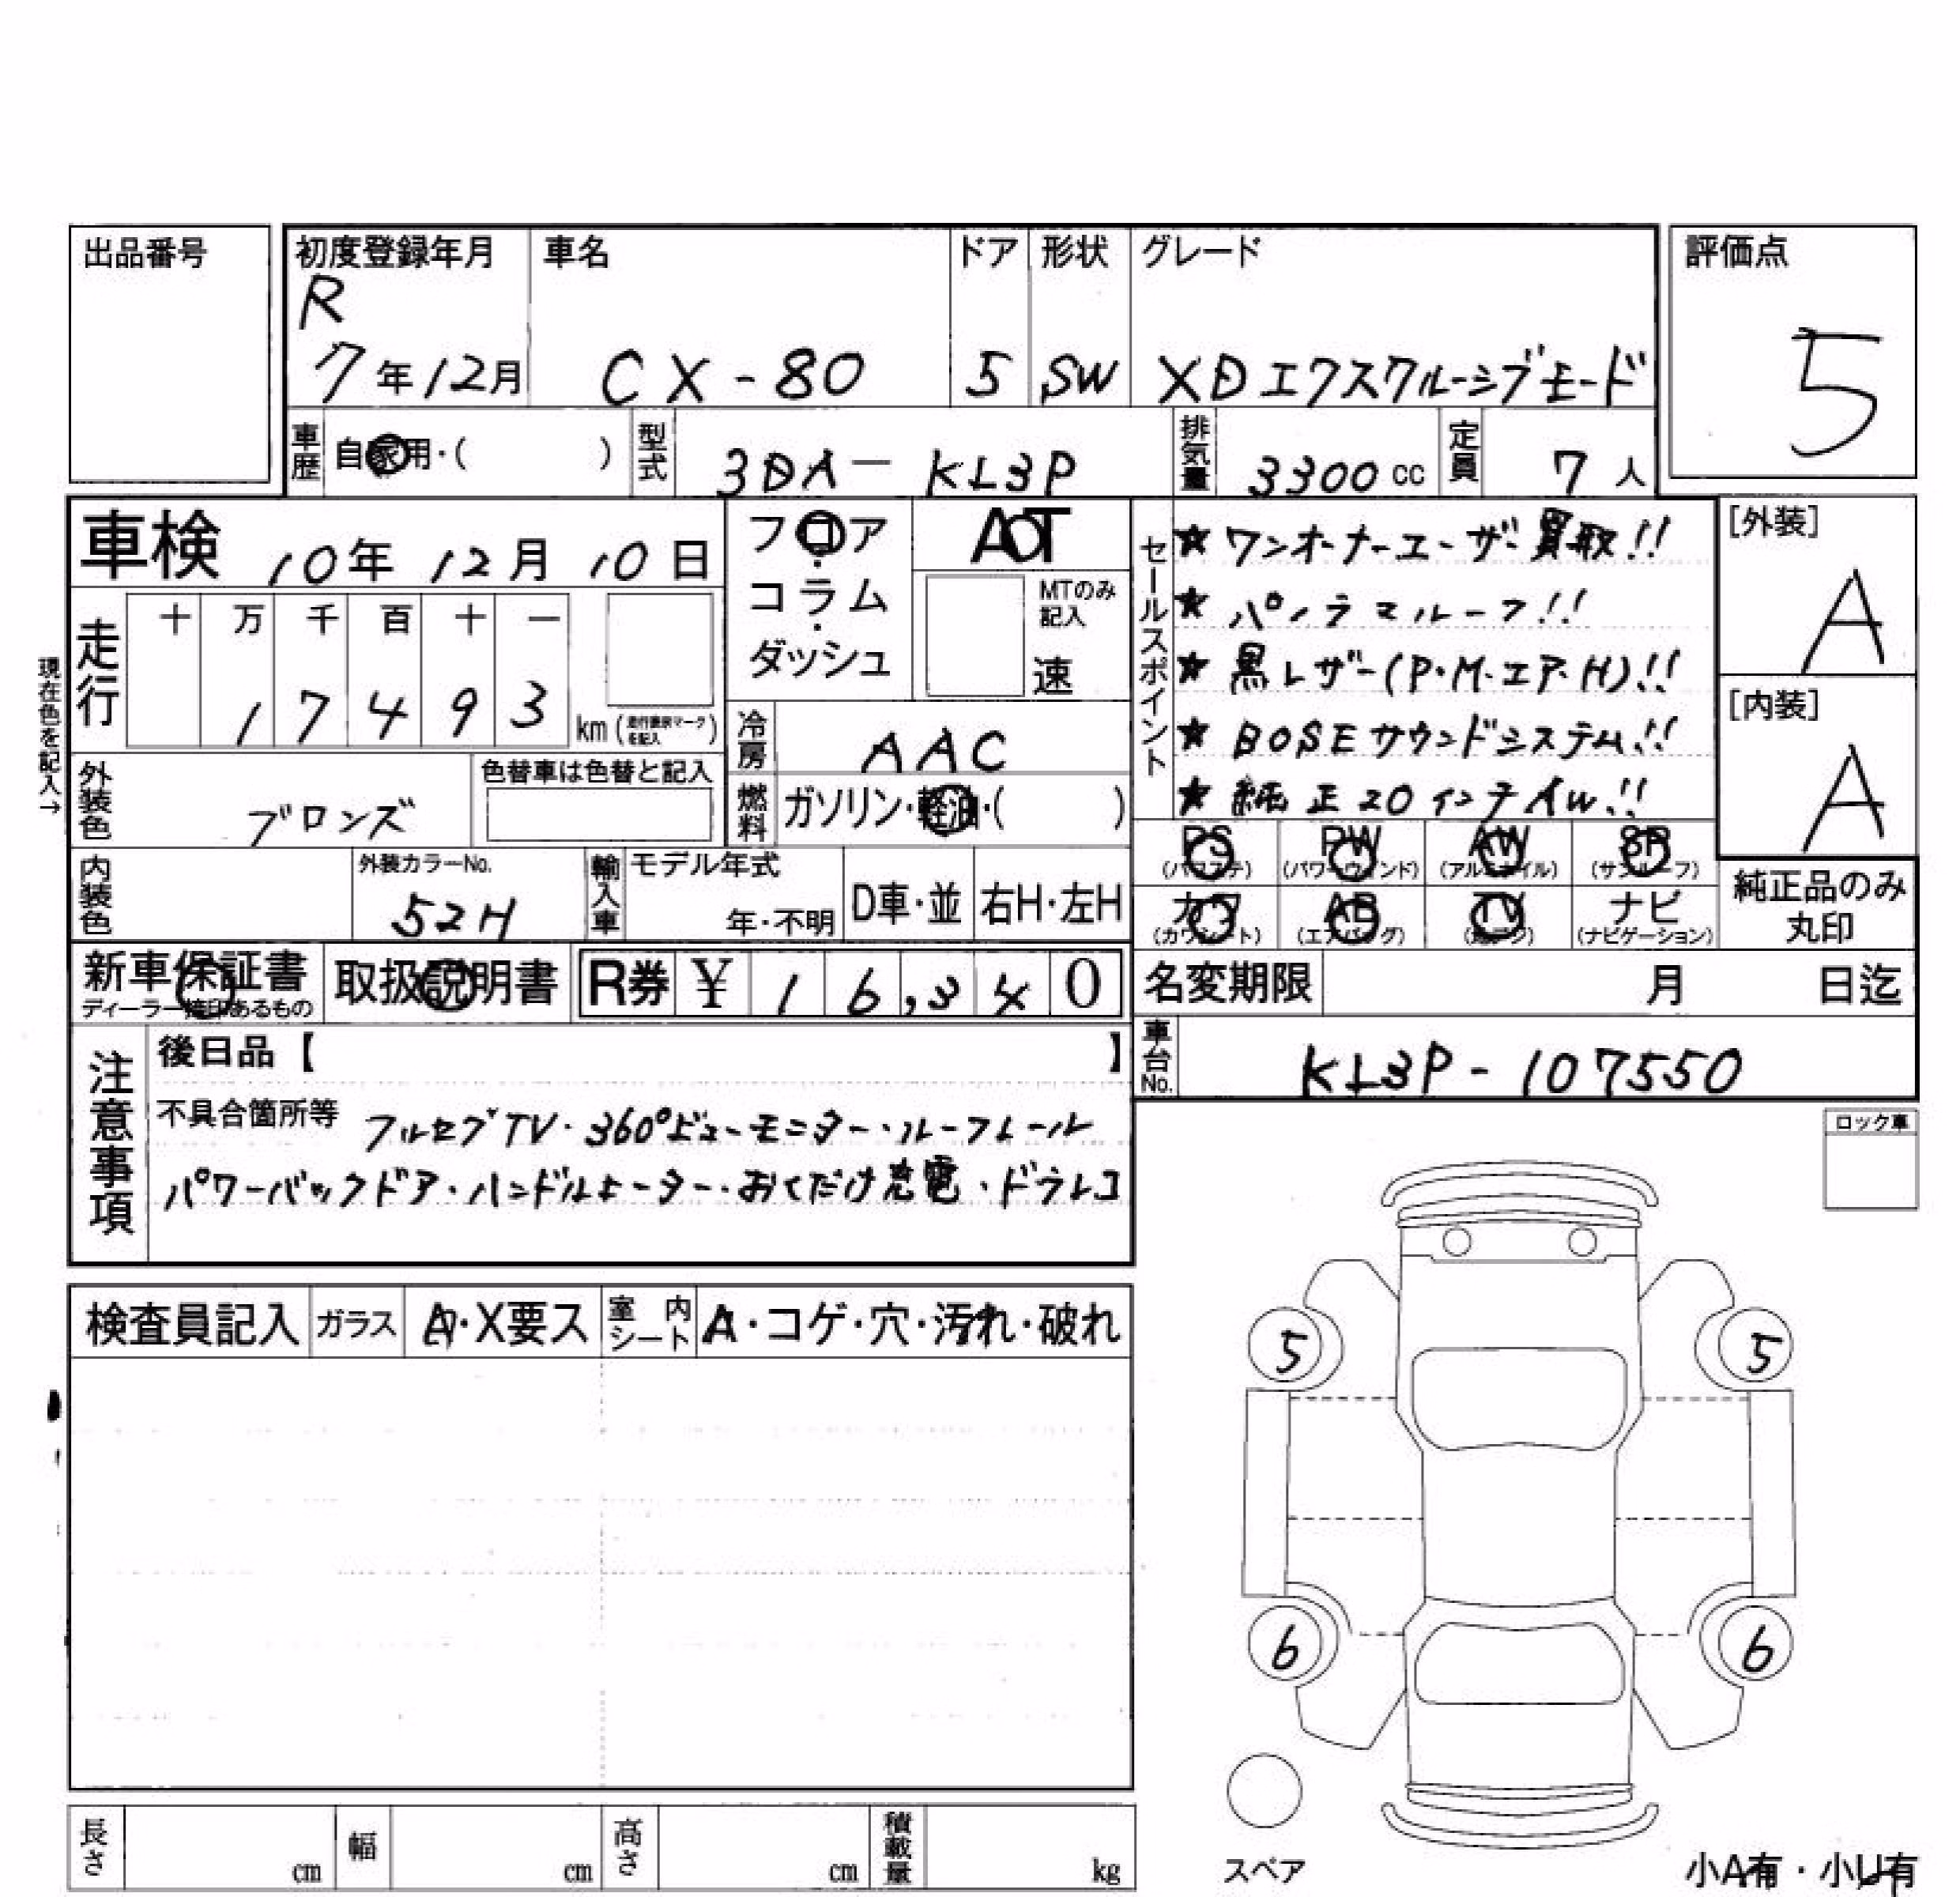 出品番号
初度登録年月 車名 ドア 形状 グレード 評価点
R
7年12月 CX-80 5 SW XDエクスクルーシブモード 5
車歴 自家用・( ) 型式 3DA-KL3P 排気量 3300cc 定員 7人
車検 10年12月10日
フロア・コラム・ダッシュ
AT
MTのみ記入
速
現在色を記入→
走行 十 万 千 百 十 一
1 7 4 9 3 km
外装色 ブロンズ 色替車は色替と記入
冷房 AAC
燃料 ガソリン・軽油・( )
内装色 外装カラーNo. 52H
輸入車 モデル年式 年・不明 D車・並 右H・左H
セールスポイント
★ワンオーナーユーザー買取!!
★パノラマルーフ!!
★黒レザー(P・M・エア・H)!!
★BOSEサウンドシステム!!
★純正20インチAW!!
[外装] A
[内装] A
PS (パワステ) PW (パワーウィンド) AW (アルミホイル) SR (サンルーフ)
カワ (カワシート) AB (エアバッグ) TV (地デジ) ナビ (ナビゲーション)
純正品のみ丸印
新車保証書 ディーラー捺印あるもの 取扱説明書 R券 ¥ 16,340
名変期限 月 日迄
車台No. KL3P-107550
注意事項
後日品【 】
不具合箇所等 フルセグTV・360°ビューモニター・ルーフレール
パワーバックドア・ハンドルヒーター・おくだけ充電・ドラレコ
ロック車
検査員記入 ガラス A・X要ス 室内シート A・コゲ・穴・汚れ・破れ
5 5
6 6
スペア
長さ cm 幅 cm 高さ cm 積載量 kg
小A有・小U有